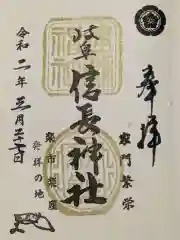 奉拝
家門繁栄
岐阜信長神社
楽市楽座
発祥の地
令和二年三月二十七日